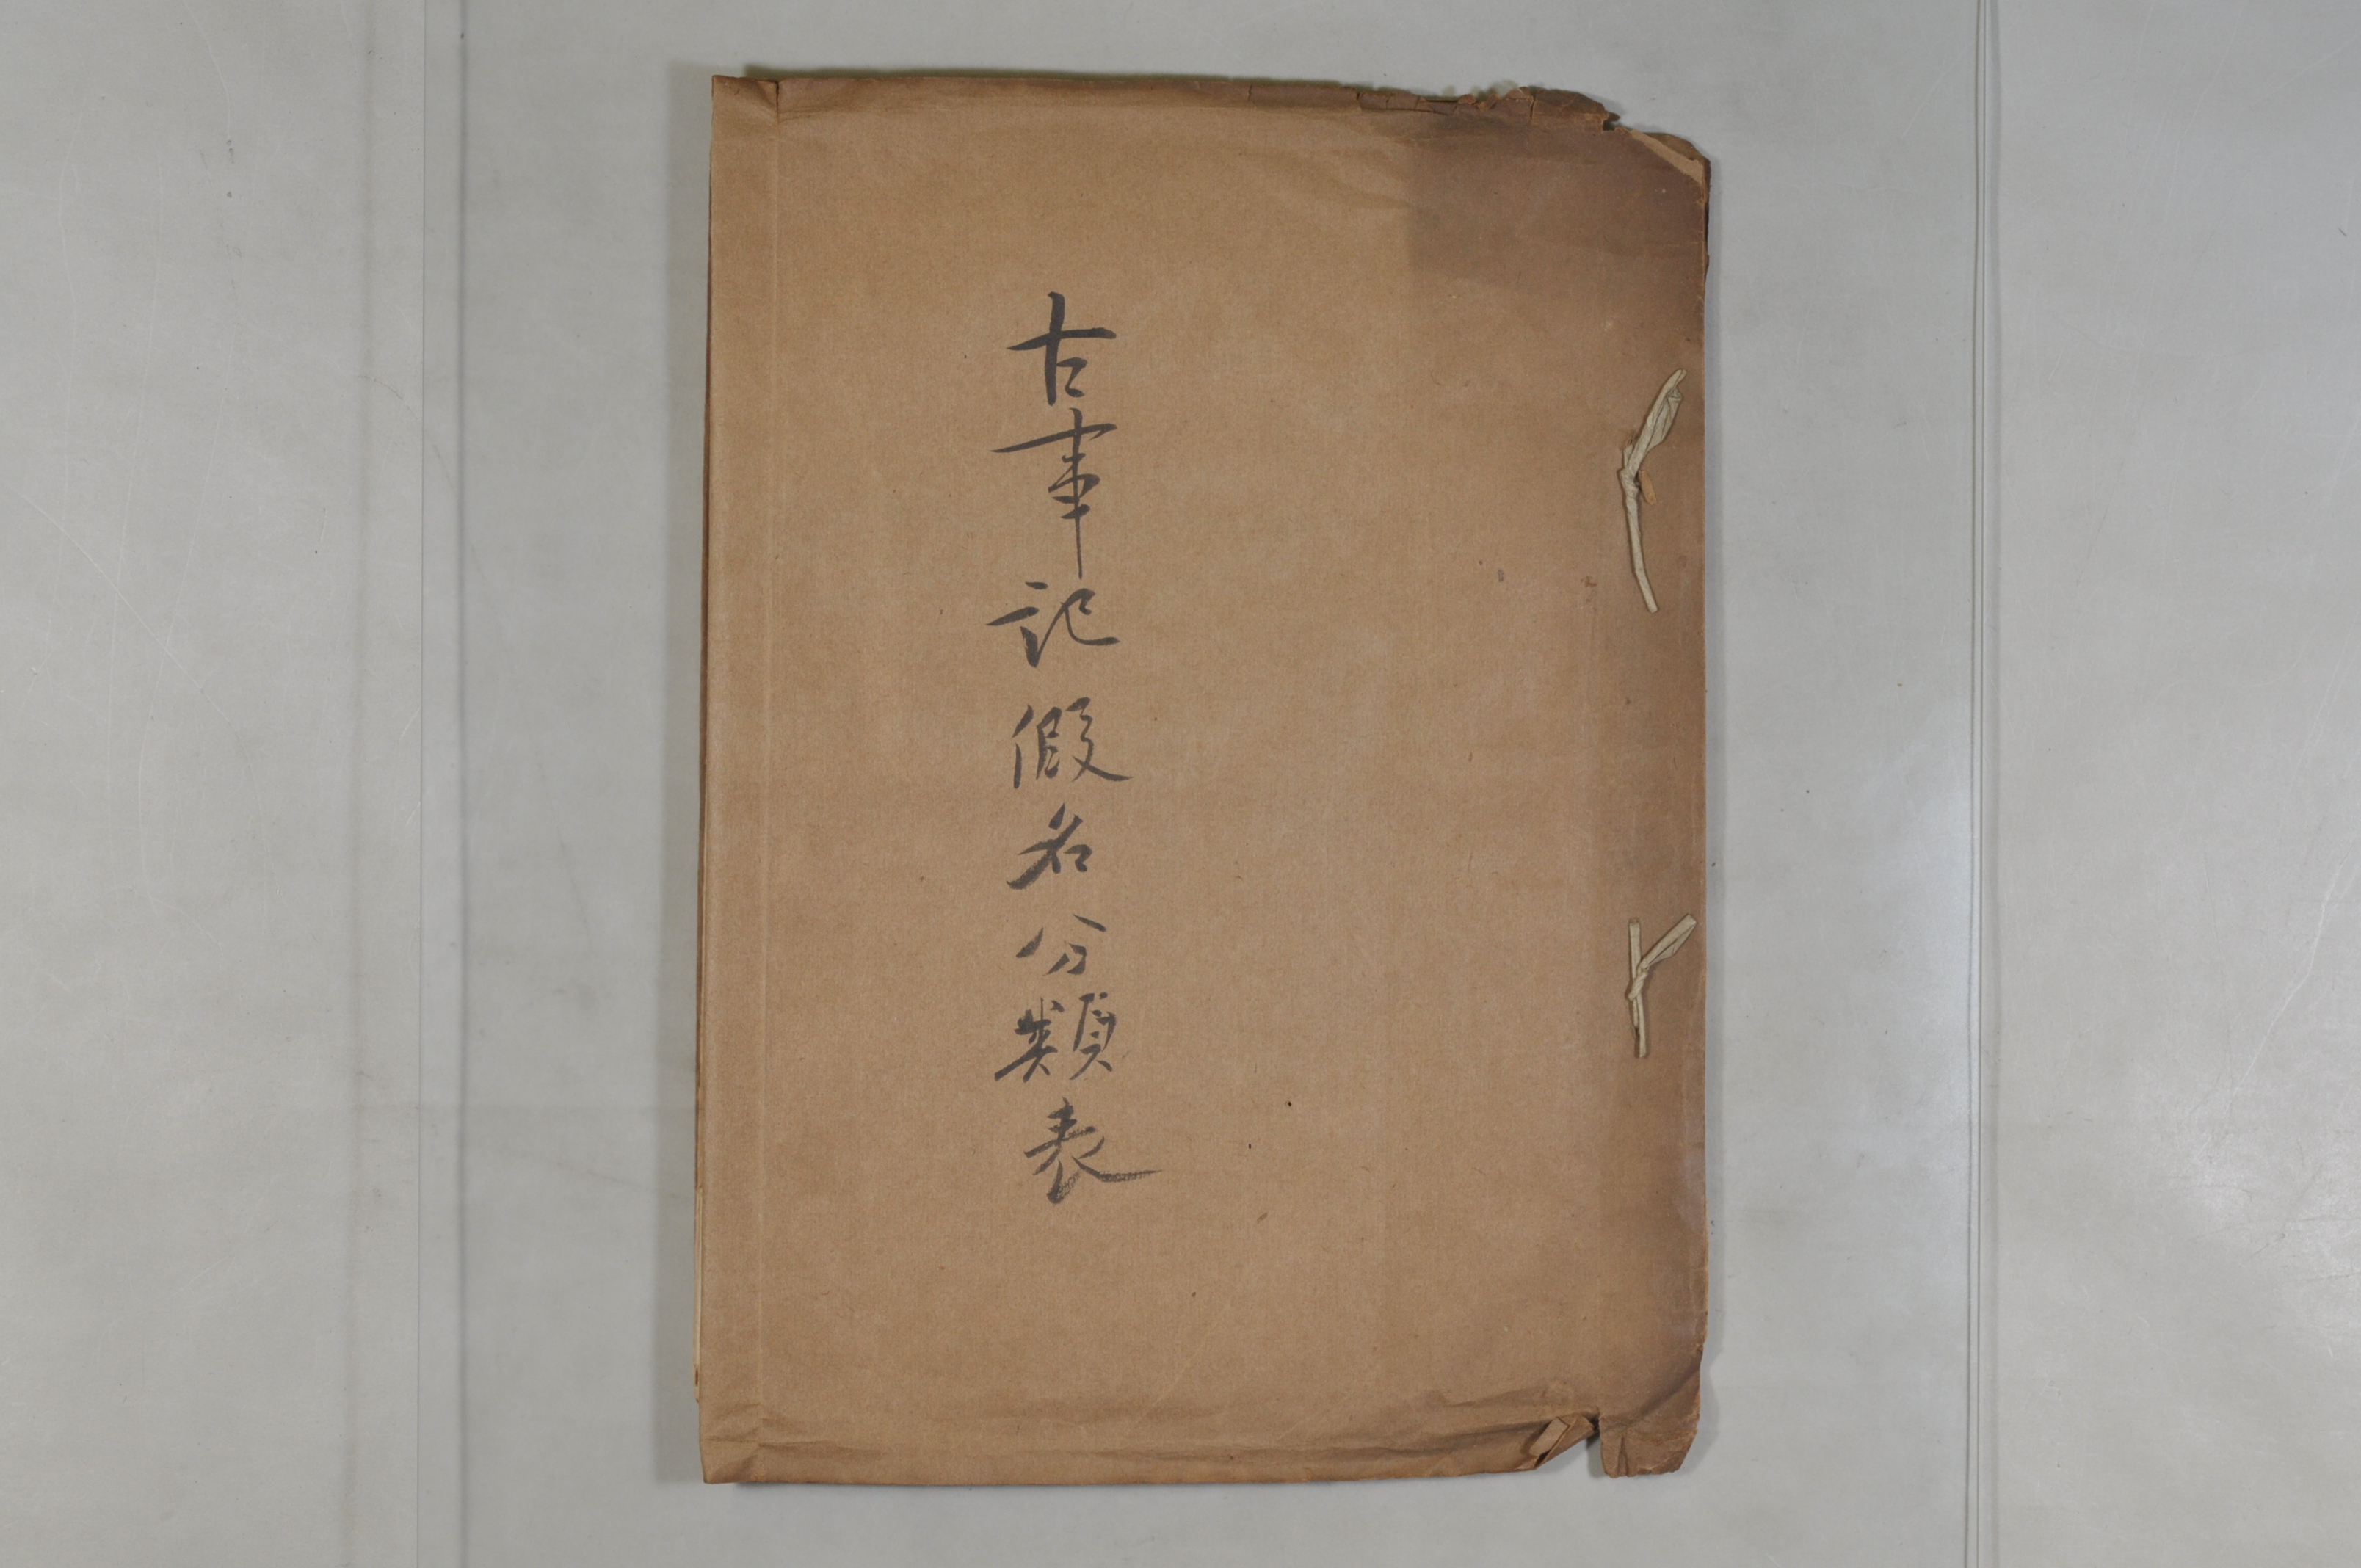 古事記假名分類表